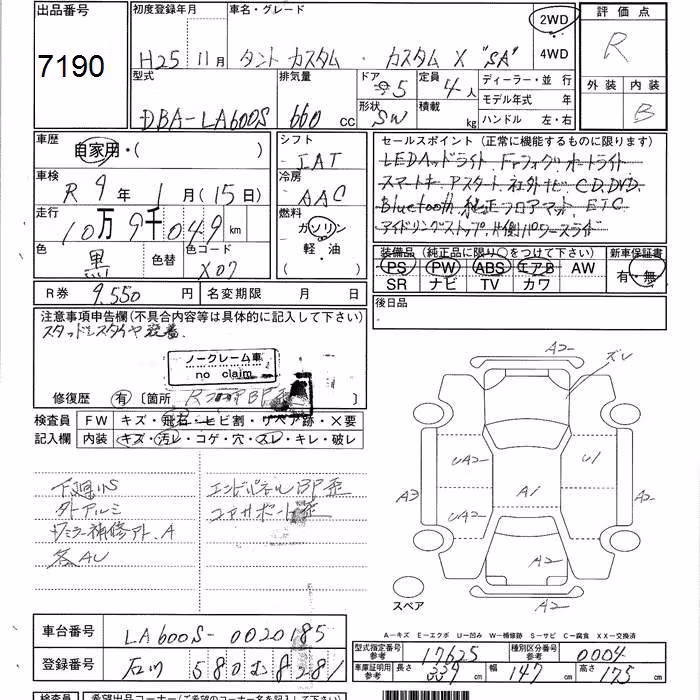 出品番号 初度登録年月 車名・グレード 評価点
7190 H25 11月 タント カスタム ・ カスタム X "SA" 2WD 4WD R
型式 排気量 ドア 定員 ディーラー・並行 外装 内装
DBA-LA600S 660 cc 5 4人 モデル年式 年 B
形状 SW 積載 kg ハンドル 左・右
車歴 自家用・( ) シフト IAT セールスポイント (正常に機能するものに限ります)
LEDヘッドライト Frフォグ オートライト
車検 R9年 1月(15日) 冷房 AAC スマートキー アスタート 社外ナビ CD.DVD.
走行 10万9千049km 燃料 ガソリン 軽・油 Bluetooth 純正フロアマット ETC
アイドリングストップ 片側パワースライド
色 黒 色替 色コード X07 装備品 (純正品に限り○をつけて下さい) 新車保証書
PS PW ABS エアB AW 有・無
SR ナビ TV カワ
R券 9,550円 名変期限 月 日 後日品
注意事項申告欄(不具合内容等は具体的に記入して下さい)
スタッドレスタイヤ装着
ノークレーム車
no claim
修復歴 有 〔箇所 〕
検査員 FW キズ・飛石・ヒビ割・リペア跡・×要
記入欄 内装 キズ・汚レ・コゲ・穴・スレ・キレ・破レ
下廻りS エンドパネルBP歪
外アルミ コアサポート歪
ワミラー補修アト.A
各AU
A2 ズレ
UA2 U1
A3 A1 A2
UA2
A2
A2
スペア
A-キズ E-エクボ U-凹み W-補修跡 S-サビ C-腐食 XX-交換済
車台番号 LA600S-0020185
型式指定番号 参考 17625 種別区分番号 参考 0004
登録番号 石川 580 む 8281
車庫証明用 参考 長さ 339 幅 147 高さ 175
検査員 希望出品コーナー(ご希望のコーナー名を記入して下さい)